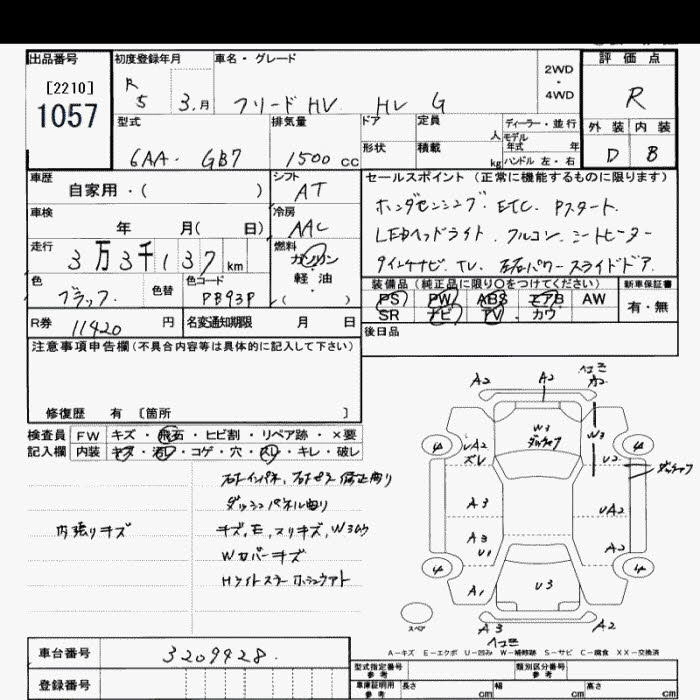 出品番号
[2210]
1057
初度登録年月
R 5 3.月
車名・グレード
フリードHV HV G
2WD
・
4WD
評価点
R
外装 内装
D B
型式
6AA- GB7
排気量
1500 cc
ドア
定員
人
形状
積載
kg
ディーラー・並行
モデル
年式 年
ハンドル 左・右
車歴
自家用・( )
シフト
AT
車検
年 月( 日)
冷房
AAC
走行
3万3千137km
燃料
ガソリン
・
軽油
( )
色
ブラック
色替
色コード
PB93P
R券
11420 円
名変通知期限 月 日
セールスポイント(正常に機能するものに限ります)
ホンダセンシング ETC. Pスタート.
LEDヘッドライト. フルコン. シートヒーター
タイレナビ. TV. 左右パワースライドドア.
装備品(純正品に限り○をつけてください)
PS PW ABS エアB AW
SR ナビ TV カワ
新車保証書
有・無
後日品
注意事項申告欄(不具合内容等は具体的に記入して下さい)
修復歴 有〔箇所 〕
検査員
記入欄
FW キズ・飛石・ヒビ割・リペア跡・×要
内装 キズ・汚レ・コゲ・穴・スレ・キレ・破レ
右インパネ、右ピラー修正有り
ダッシュパネル曲り
内張りキズ
キズ、E、スリキズ、W3ムラ
Wカバーキズ
A2 A2 ヘコミ A2
W3
W3
4 4
UA2
ズレ
U2
A3
UA2
A3
U1
A2
4 4
A1
U3
スペア
A3 ヘコミ A2
A-キズ E-エクボ U-凹み W-補修跡 S-サビ C-腐食 XX-交換済
車台番号
3209928.
登録番号
型式指定番号
参考
類別区分番号
参考
車庫証明用
参考
長さ cm
幅 cm
高さ cm